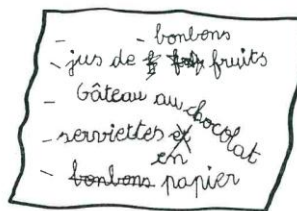 - - bonbons
- jus de fruits
- Gâteau au chocolat
- serviettes en
- bonbons papier